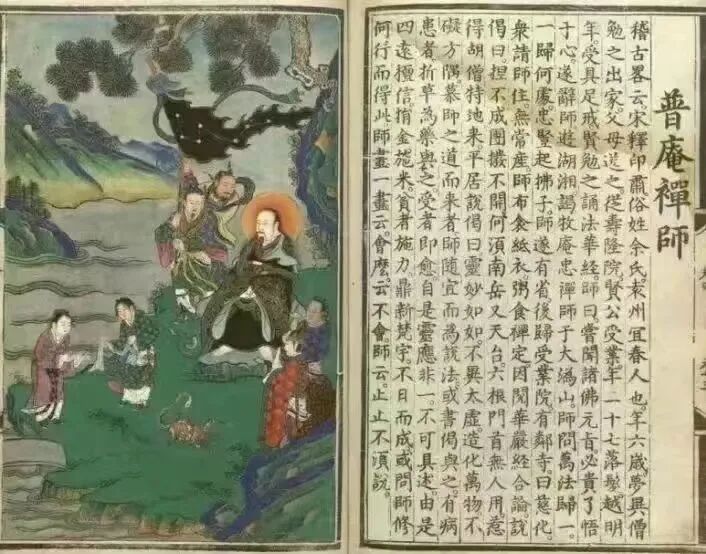 普庵禪師
稽古畧云。宋釋印肅。俗姓余氏。袁州宜春人也。年六歲。夢異僧
勉之出家。父母送之。從壽隆院賢公受業。年二十七落髮。越明
年。受具足戒。賢勉之誦法華經。師曰。嘗聞諸佛元旨。必貴了悟
于心。遂辭師遊湖湘。謁牧庵忠禪師于大溈山。師問萬法歸一。
一歸何處。忠豎起拂子。師遂有省。後歸受業院。有鄰寺。曰慈化。
衆請師住。無常產。師布衾紙衣。粥食禪定。因閱華嚴經合論。說
偈曰。捏不成團撥不開。何須南岳又天台。六根門首無人用。惹
得胡僧特地来。平居說偈曰。靈妙如如。不異太虛。造化萬物。不
礙方隅。慕師之道而来者。師隨宜而為說法。或書偈與之。有病
患者。折草為藥與之。受者即愈。自是靈應非一。不可具述。由是
四遠檀信。捐金施米。貧者施力。鼎新梵宇。不日而成。或問師修
何行而得此。師畫一畫云。會麼。云不會。師云。止止不湏說。